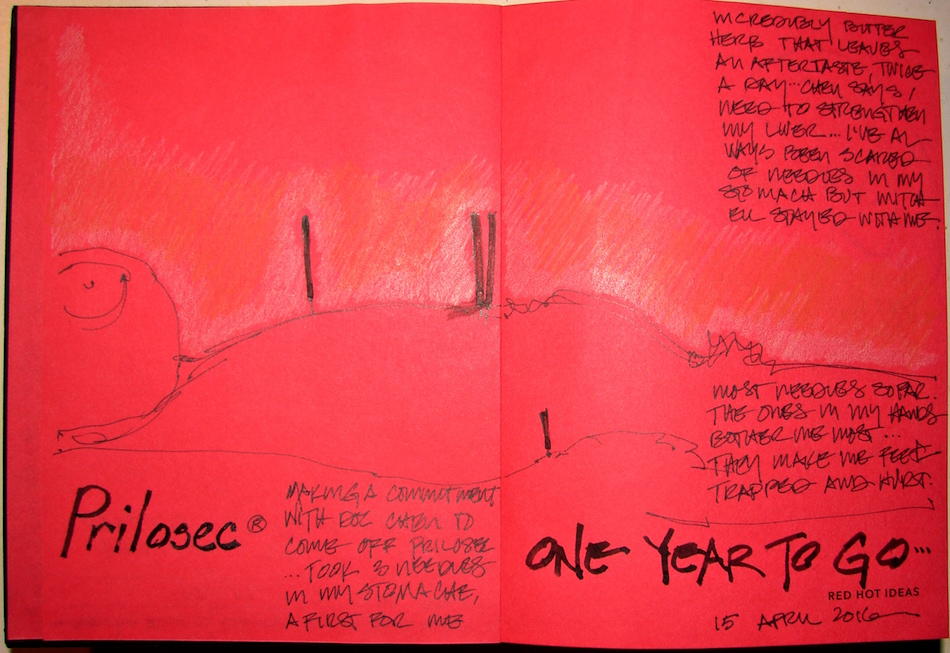 Prilosec®
MAKING A COMMITMENT
WITH DOC CHEN TO
COME OFF PRILOSEC
...TOOK 3 NEEDLES
IN MY STOMACHE,
A FIRST FOR ME
INCREDIBLY BITTER
HERB THAT LEAVES
AN AFTERTASTE, TWICE
A DAY... CHEN SAYS I
NEED TO STRENGTHEN
MY LIVER... I'VE AL
WAYS BEEN SCARED
OF NEEDLES IN MY
STOMACH BUT MITCH
ELL STAYED WITH ME.
MOST NEEDLES SO FAR.
THE ONES IN MY HANDS
BOTHER ME MOST...
THEY MAKE ME FEEL
TRAPPED AND HURT.
ONE YEAR TO GO...
RED HOT IDEAS
15 APRIL 2016